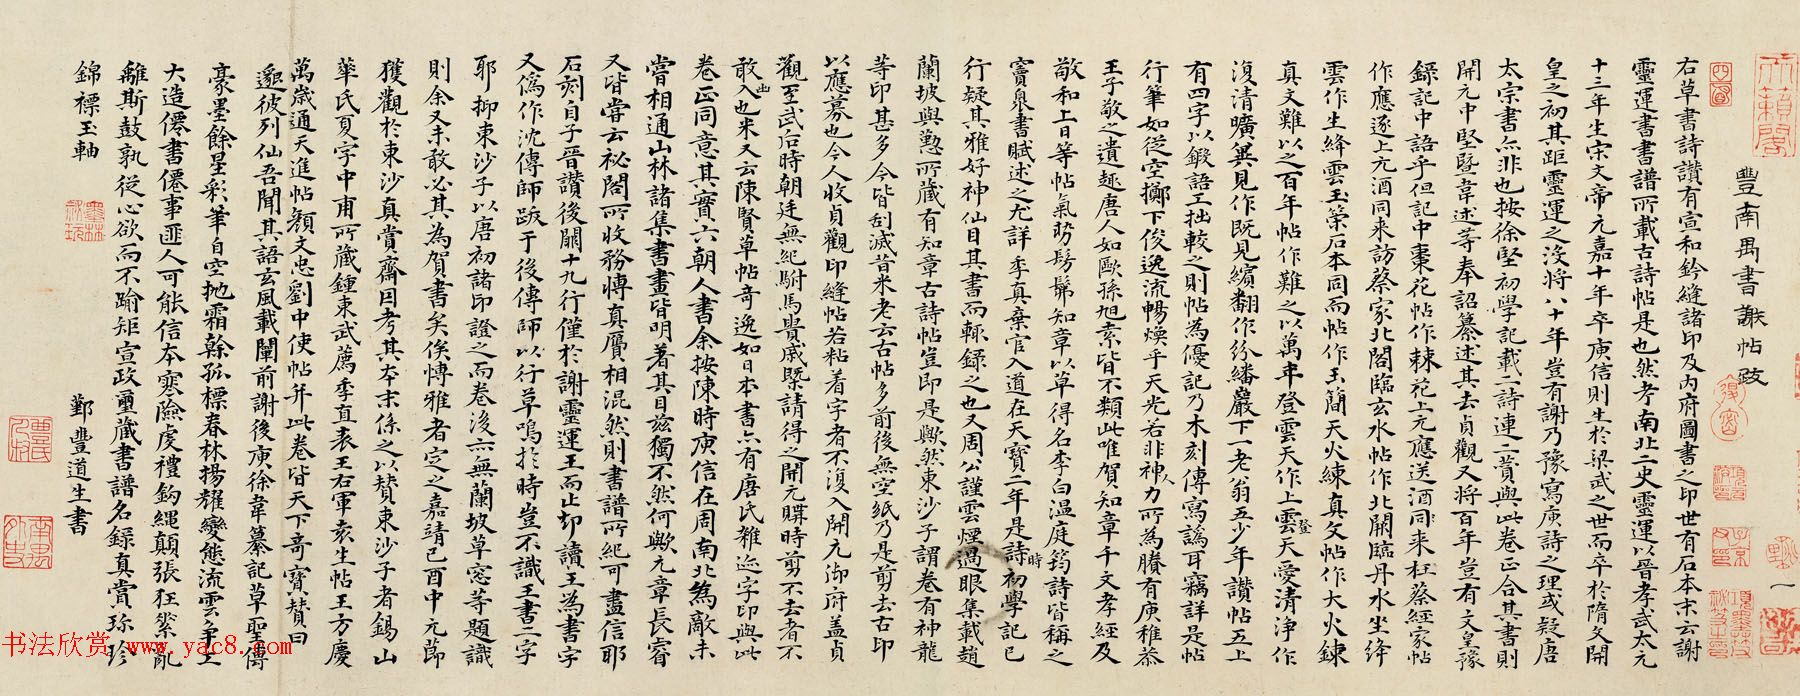 豐南禺書謝帖跋
右草書詩讚有宣和鈐縫諸印及內府圖書之印世有石本末云謝
靈運書書譜所載古詩帖是也然考南北二史靈運以晉孝武太元
十三年生宋文帝元嘉十年卒庾信則生於梁武之世而卒於隋文開
皇之初其距靈運之沒將八十年豈有謝乃豫寫庾詩之理或疑唐
太宗書亦非也按徐堅初學記載二詩連二贊與此卷正合其書則
開元中堅暨韋述等奉詔纂述其去貞觀又將百年豈有文皇豫
錄記中語乎但記中棗花帖作棘花上元應送酒同來枉蔡經家帖
作應逐上元酒同來訪蔡家北閣臨玄水帖作北闕臨丹水坐絳
雲作生絳雲玉策石本同而帖作玉簡天火練真文帖作大火鍊
真文難以之百年帖作難之以萬年登雲天作上登雲天愛清淨作
復清曠冀見作既見繽翻作紛繙巖下一老翁五少年讚帖五上
有四字以鍛語工拙較之則帖為優記乃木刻傳寫譌耳竊詳是帖
行筆如從空擲下俊逸流暢煥乎天光若非人力所為賸有庾稚恭
王子敬之遺趣唐人如歐孫旭素皆不類此唯賀知章千文孝經及
敬和上日等帖氣勢髣髴知章以草得名李白溫庭筠詩皆稱之
竇泉書賦述之尤詳季真棄官入道在天寶二年是時初學記已
行疑其雅好神仙目其書而輒錄之也又周公謹雲煙過眼集載趙
蘭坡與懃所藏有知章古詩帖豈即是歟然東沙子謂卷有神龍
等印甚多今皆刮滅昔米老云古帖多前後無空紙乃是剪去古印
以應募也今人收貞觀印縫帖若粘着字者不復入開元御府蓋貞
觀至武后時朝廷無紀駙馬貴戚槩請得之開元購時剪不去者不
敢出也米又云陳賢草帖奇逸如日本書亦有唐氏雜迹字印與此
卷正同意其實六朝人書余按陳時庾信在周南北為敵未
嘗相通山林諸集書畫皆明著其目茲獨不然何歟元章長睿
又皆嘗云祕閣所收務博真贗相混然則書譜所紀可盡信耶
石刻自子晉讚後闕十九行僅於謝靈運王而止却讀王為書字
又偽作沈傳師跋于後傳師以行草鳴於時豈不識王書二字
耶抑東沙子以唐初諸印證之而卷後亦無蘭坡草窓等題識
則余又未敢必其為賀書矣俟博雅者定之嘉靖己酉中元節
獲觀於東沙真賞齋因考其本末係之以贊東沙子者錫山
華氏夏字中甫所藏鍾東武薦季直表王右軍袁生帖王方慶
萬歲通天進帖顏文忠劉中使帖并此卷皆天下奇寶贊曰
邈彼列仙吾聞其語玄風載闡前謝後庾徐韋纂記草聖傳
豪墨餘星彩筆自空拋霜榦孤標春林揚耀變態流雲爭工
大造僊書僊事匪人可能信本寒險虔禮鈎繩顛張狂縈亂
離斯鼓孰從心欲而不踰矩宣政璽藏書譜名錄真賞珎珍
錦褾玉軸
鄞豐道生書
书法欣赏 www.yac8.com